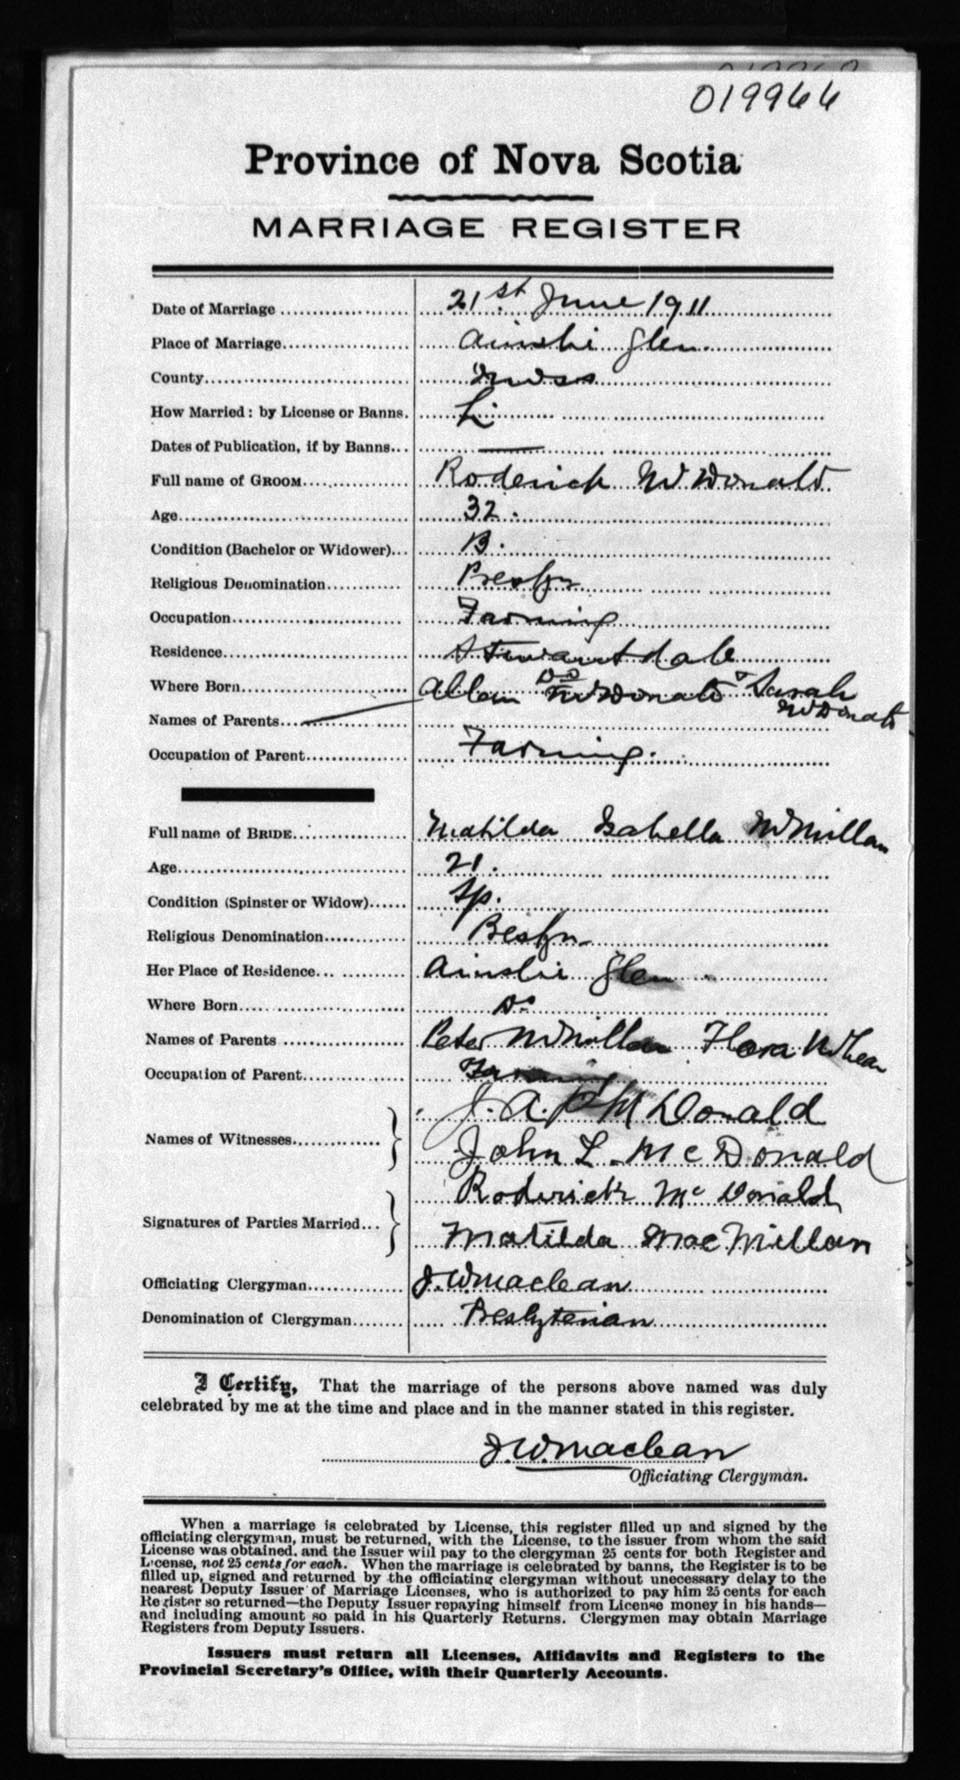 019966
Province of Nova Scotia
MARRIAGE REGISTER
Date of Marriage 21st June 1911
Place of Marriage Ainslie Glen
County Inverness
How Married: by License or Banns. Li
Dates of Publication, if by Banns —
Full name of GROOM Roderick McDonald
Age 32.
Condition (Bachelor or Widower) B.
Religious Denomination Presbyn
Occupation Farming
Residence Stewartdale
Where Born Do
Names of Parents Allan McDonald & Sarah McDonald
Occupation of Parent Farming.
Full name of BRIDE Matilda Isabella McMillan
Age 21.
Condition (Spinster or Widow) Sp.
Religious Denomination Presbyn
Her Place of Residence Ainslie Glen
Where Born Do
Names of Parents Peter McMillan Flora McLean
Occupation of Parent Farming
Names of Witnesses J. A. P. McDonald
John L. McDonald
Signatures of Parties Married Roderick McDonald
Matilda MacMillan
Officiating Clergyman J. W. Maclean
Denomination of Clergyman Presbyterian
I Certify, That the marriage of the persons above named was duly
celebrated by me at the time and place and in the manner stated in this register.
J. W. Maclean
Officiating Clergyman.
When a marriage is celebrated by License, this register filled up and signed by the
officiating clergyman, must be returned, with the License, to the issuer from whom the said
License was obtained, and the Issuer will pay to the clergyman 25 cents for both Register and
License, not 25 cents for each. When the marriage is celebrated by banns, the Register is to be
filled up, signed and returned by the officiating clergyman without unnecessary delay to the
nearest Deputy Issuer of Marriage Licenses, who is authorized to pay him 25 cents for each
Register so returned—the Deputy Issuer repaying himself from License money in his hands—
and including amount so paid in his Quarterly Returns. Clergymen may obtain Marriage
Registers from Deputy Issuers.
Issuers must return all Licenses, Affidavits and Registers to the
Provincial Secretary's Office, with their Quarterly Accounts.